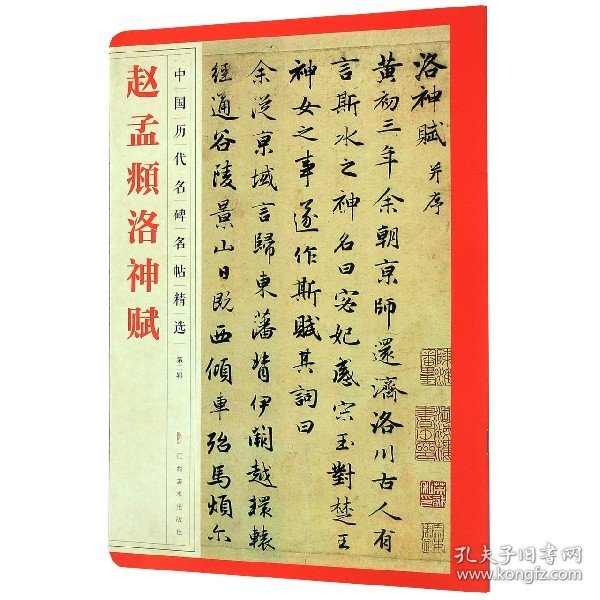 赵孟頫洛神赋
中国历代名碑名帖精选
第二辑
江西美术出版社
洛神賦 并序
黄初三年余朝京師還濟洛川古人有
言斯水之神名曰宓妃感宋玉對楚王
神女之事遂作斯賦其詞曰
余從京域言歸東藩背伊闕越轘轅
經通谷陵景山日既西傾車殆馬煩尔
孔夫子旧书网
www.kongfz.com